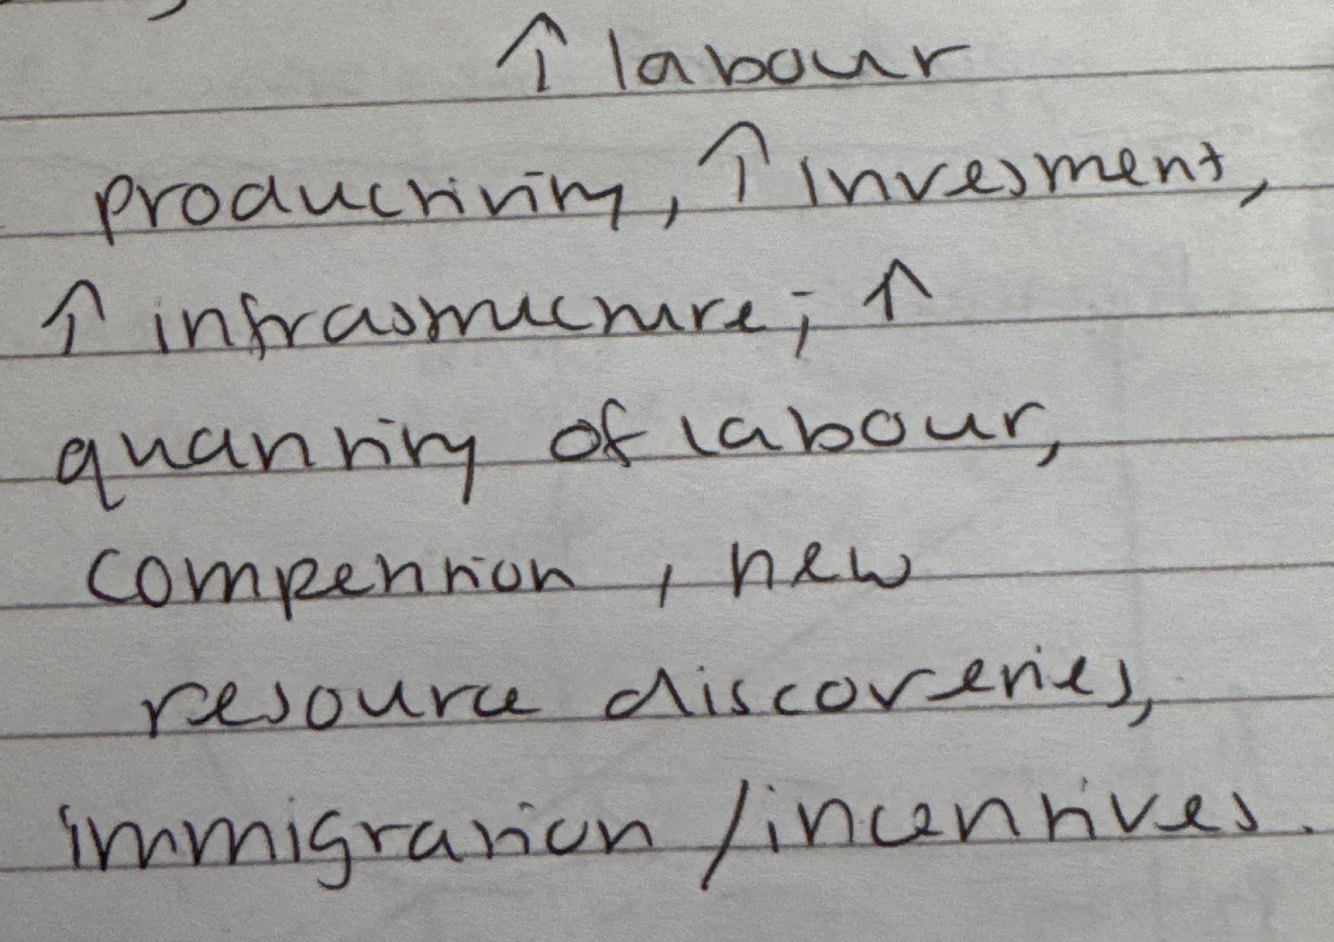 ↑ labour
productivity, ↑ invesment,
↑ infrastructure, ↑
quantity of labour,
competition, new
resource discoveries,
immigration / incentives.